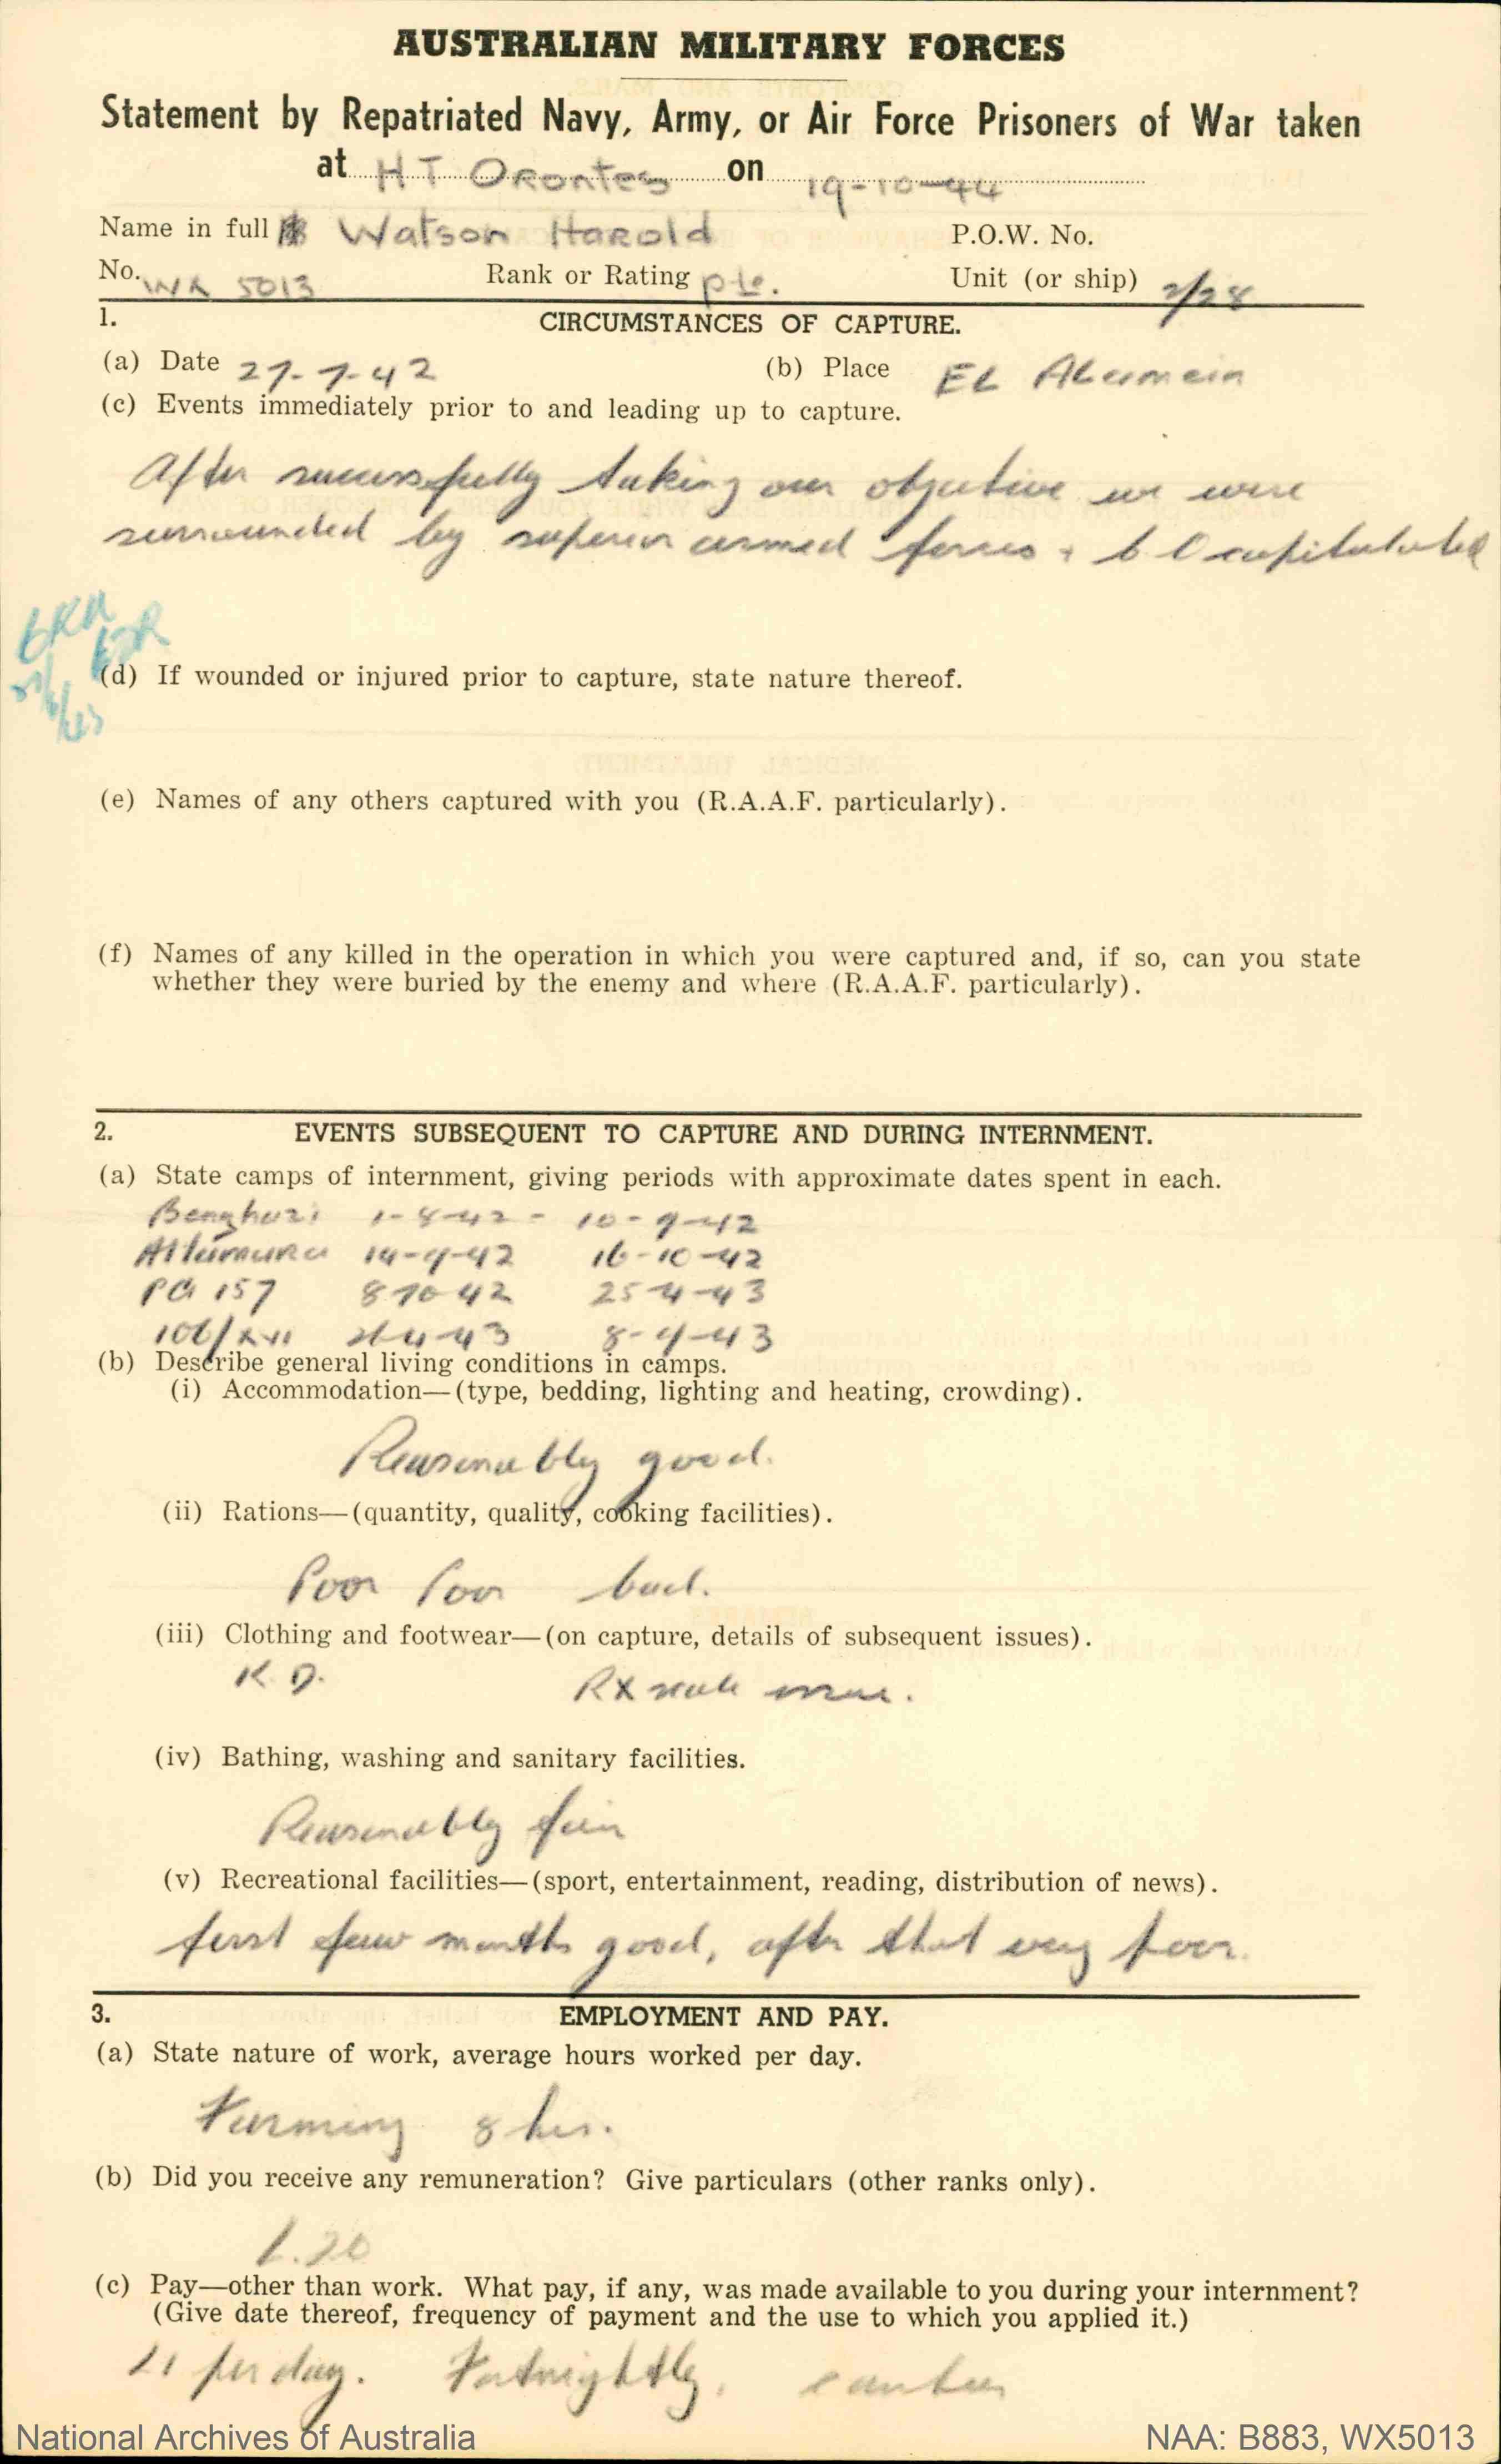 AUSTRALIAN MILITARY FORCES
Statement by Repatriated Navy, Army, or Air Force Prisoners of War taken
at HT Orontes on 19-10-44
Name in full Watson Harold P.O.W. No.
No. WX 5013 Rank or Rating pte. Unit (or ship) 2/28
1. CIRCUMSTANCES OF CAPTURE.
(a) Date 27-7-42 (b) Place EL Alamein
(c) Events immediately prior to and leading up to capture.
After successfully taking our objective we were
surrounded by superior armed forces + C O capitulated
(d) If wounded or injured prior to capture, state nature thereof.
(e) Names of any others captured with you (R.A.A.F. particularly).
(f) Names of any killed in the operation in which you were captured and, if so, can you state
whether they were buried by the enemy and where (R.A.A.F. particularly).
2. EVENTS SUBSEQUENT TO CAPTURE AND DURING INTERNMENT.
(a) State camps of internment, giving periods with approximate dates spent in each.
Benghazi 1-8-42 - 10-9-42
Altamura 14-9-42 16-10-42
PG 157 8 10 42 25-4-43
106/XVII 26-4-43 8-9-43
(b) Describe general living conditions in camps.
(i) Accommodation—(type, bedding, lighting and heating, crowding).
Reasonably good.
(ii) Rations—(quantity, quality, cooking facilities).
Poor Poor bad.
(iii) Clothing and footwear—(on capture, details of subsequent issues).
K. D. RX
(iv) Bathing, washing and sanitary facilities.
Reasonably fair
(v) Recreational facilities—(sport, entertainment, reading, distribution of news).
first few months good, after that very poor.
3. EMPLOYMENT AND PAY.
(a) State nature of work, average hours worked per day.
Farming 8 hrs.
(b) Did you receive any remuneration? Give particulars (other ranks only).
1.20
(c) Pay—other than work. What pay, if any, was made available to you during your internment?
(Give date thereof, frequency of payment and the use to which you applied it.)
per day. Fortnightly. canteen
National Archives of Australia NAA: B883, WX5013